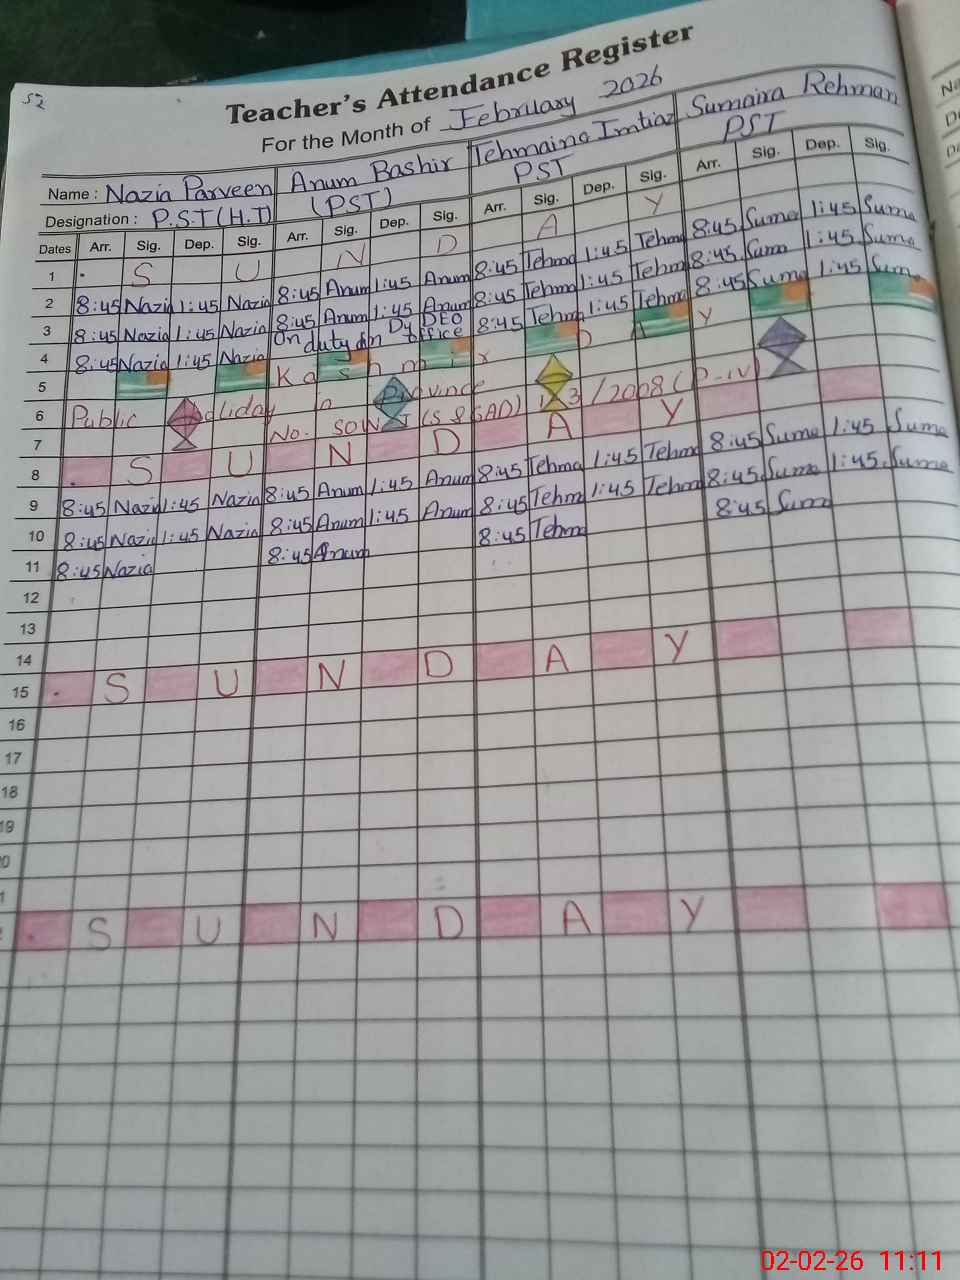 52
Teacher's Attendance Register
For the Month of February 2026
Name : Nazia Parveen Anum Bashir Tehmaina Imtiaz Sumaira Rehman
Designation : P.S.T (H.T) (PST) PST PST
Dates Arr. Sig. Dep. Sig. Arr. Sig. Dep. Sig. Arr. Sig. Dep. Sig. Arr. Sig. Dep. Sig.
1 S U N D A Y
2 8:45 Nazia 1:45 Nazia 8:45 Anum 1:45 Anum 8:45 Tehma 1:45 Tehma 8:45 Suma 1:45 Suma
3 8:45 Nazia 1:45 Nazia 8:45 Anum 1:45 Anum 8:45 Tehma 1:45 Tehma 8:45 Suma 1:45 Suma
4 8:45 Nazia 1:45 Nazia On duty in Dy DEO office 8:45 Tehma 1:45 Tehma 8:45 Suma 1:45 Suma
5 Kashmir D A Y
6 Public Holiday in Province
7 No. SOW (S&GAD) 3/2008 (P-IV)
8 S U N D A Y
9 8:45 Nazia 1:45 Nazia 8:45 Anum 1:45 Anum 8:45 Tehma 1:45 Tehma 8:45 Suma 1:45 Suma
10 8:45 Nazia 1:45 Nazia 8:45 Anum 1:45 Anum 8:45 Tehma 1:45 Tehma 8:45 Suma 1:45 Suma
11 8:45 Nazia 8:45 Anum 8:45 Tehma 8:45 Suma
12
13
14
15 S U N D A Y
16
17
18
19
S U N D A Y
02-02-26 11:11